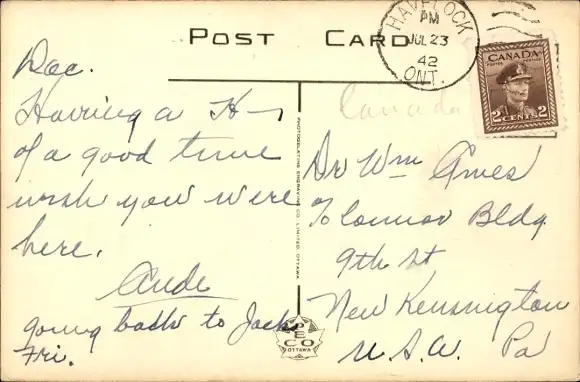 POST CARD
HAVELOCK
PM
JUL 23
42
ONT.
CANADA
POSTES POSTAGE
2 CENTS 2
Canada
Doc.
Having a H—
of a good time
wish you were
here.
Ande
going back to Jacks
Fri.
PHOTOGELATINE ENGRAVING CO. LIMITED, OTTAWA
PECO
OTTAWA
Dr Wm Ames
℅ Connor Bldg
9th St
New Kensington
U.S.A. Pa